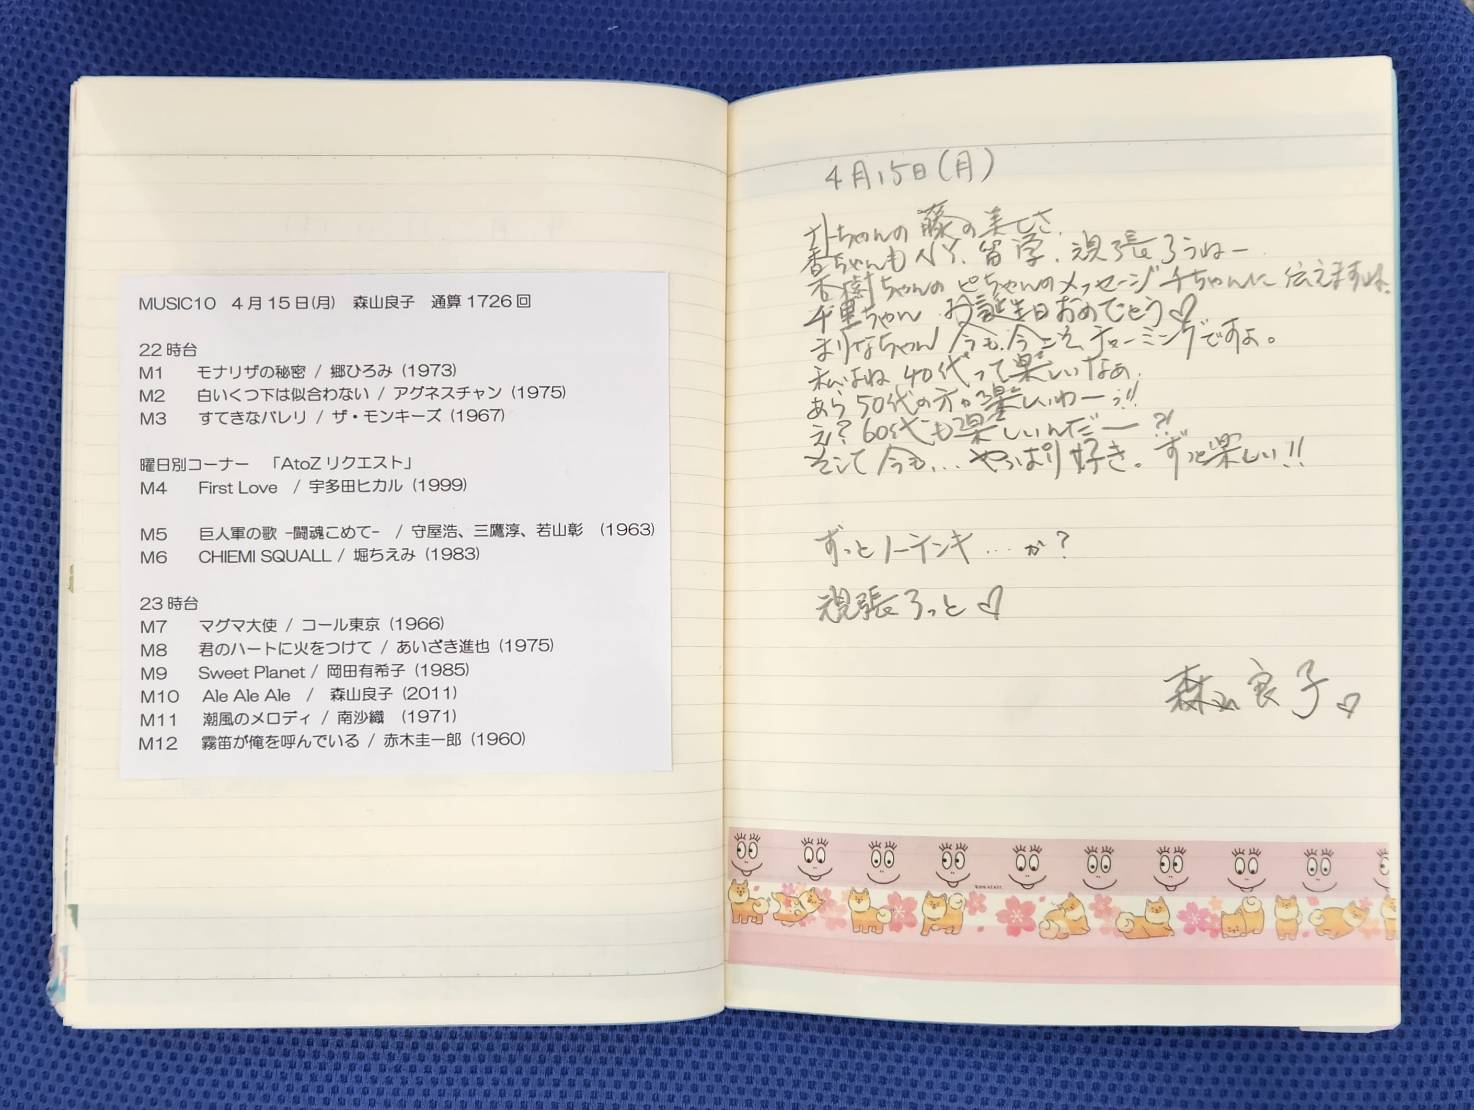 MUSIC10 4月15日(月) 森山良子 通算1726回
22時台
M1 モナリザの秘密 / 郷ひろみ (1973)
M2 白いくつ下は似合わない / アグネスチャン (1975)
M3 すてきなバレリ / ザ・モンキーズ (1967)
曜日別コーナー 「AtoZリクエスト」
M4 First Love / 宇多田ヒカル (1999)
M5 巨人軍の歌 -闘魂こめて- / 守屋浩、三鷹淳、若山彰 (1963)
M6 CHIEMI SQUALL / 堀ちえみ (1983)
23時台
M7 マグマ大使 / コール東京 (1966)
M8 君のハートに火をつけて / あいざき進也 (1975)
M9 Sweet Planet / 岡田有希子 (1985)
M10 Ale Ale Ale / 森山良子 (2011)
M11 潮風のメロディ / 南沙織 (1971)
M12 霧笛が俺を呼んでいる / 赤木圭一郎 (1960)
4月15日(月)
ちゃんの藤の美しさ.
香ちゃんもN.Y.留学.頑張ろうねー
杏樹ちゃんのピちゃんのメッセージ千ちゃんに伝えますね.
千里ちゃん お誕生日おめでとう♡
まりなちゃん 今も.今こそ.チャーミングですよ。
私はね 40代って楽しいなぁ.
あら50代の方が楽しいわー!!
え?60代も楽しいんだー?!
そして今も...やっぱり好き。ずっと楽しい!!
ずっとノーテンキ...か?
頑張ろっと♡
森山良子♡